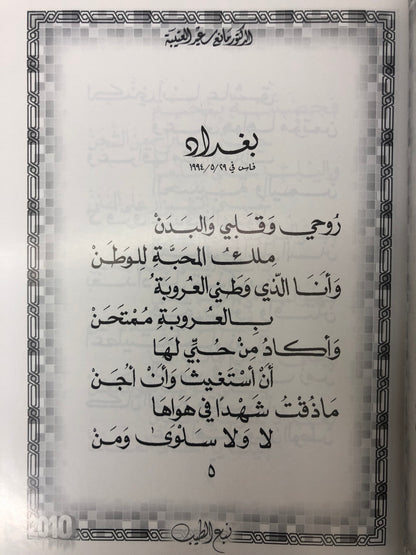 الدكتور مانع سعيد العتيبة
بغداد
فاس في ٢٩/٥/١٩٩٤
رُوحي وَقَلبي وَالبَدَنْ
مِلكُ المحَبَّةِ لِلوَطَنْ
وَأنَا الذّي وَطَني العُروبَةُ
بِالعُروبَةِ مُمْتَحَنْ
وَأكَادُ مِنْ حُبِّي لهَا
أنْ أسْتَغيثَ وَأنْ أُجَنْ
مَاذُقْتُ شَهْدًا في هَوَاهَا
لا وَلا سَلْوَى وَمَنْ
٥
نبع الطيب
2010